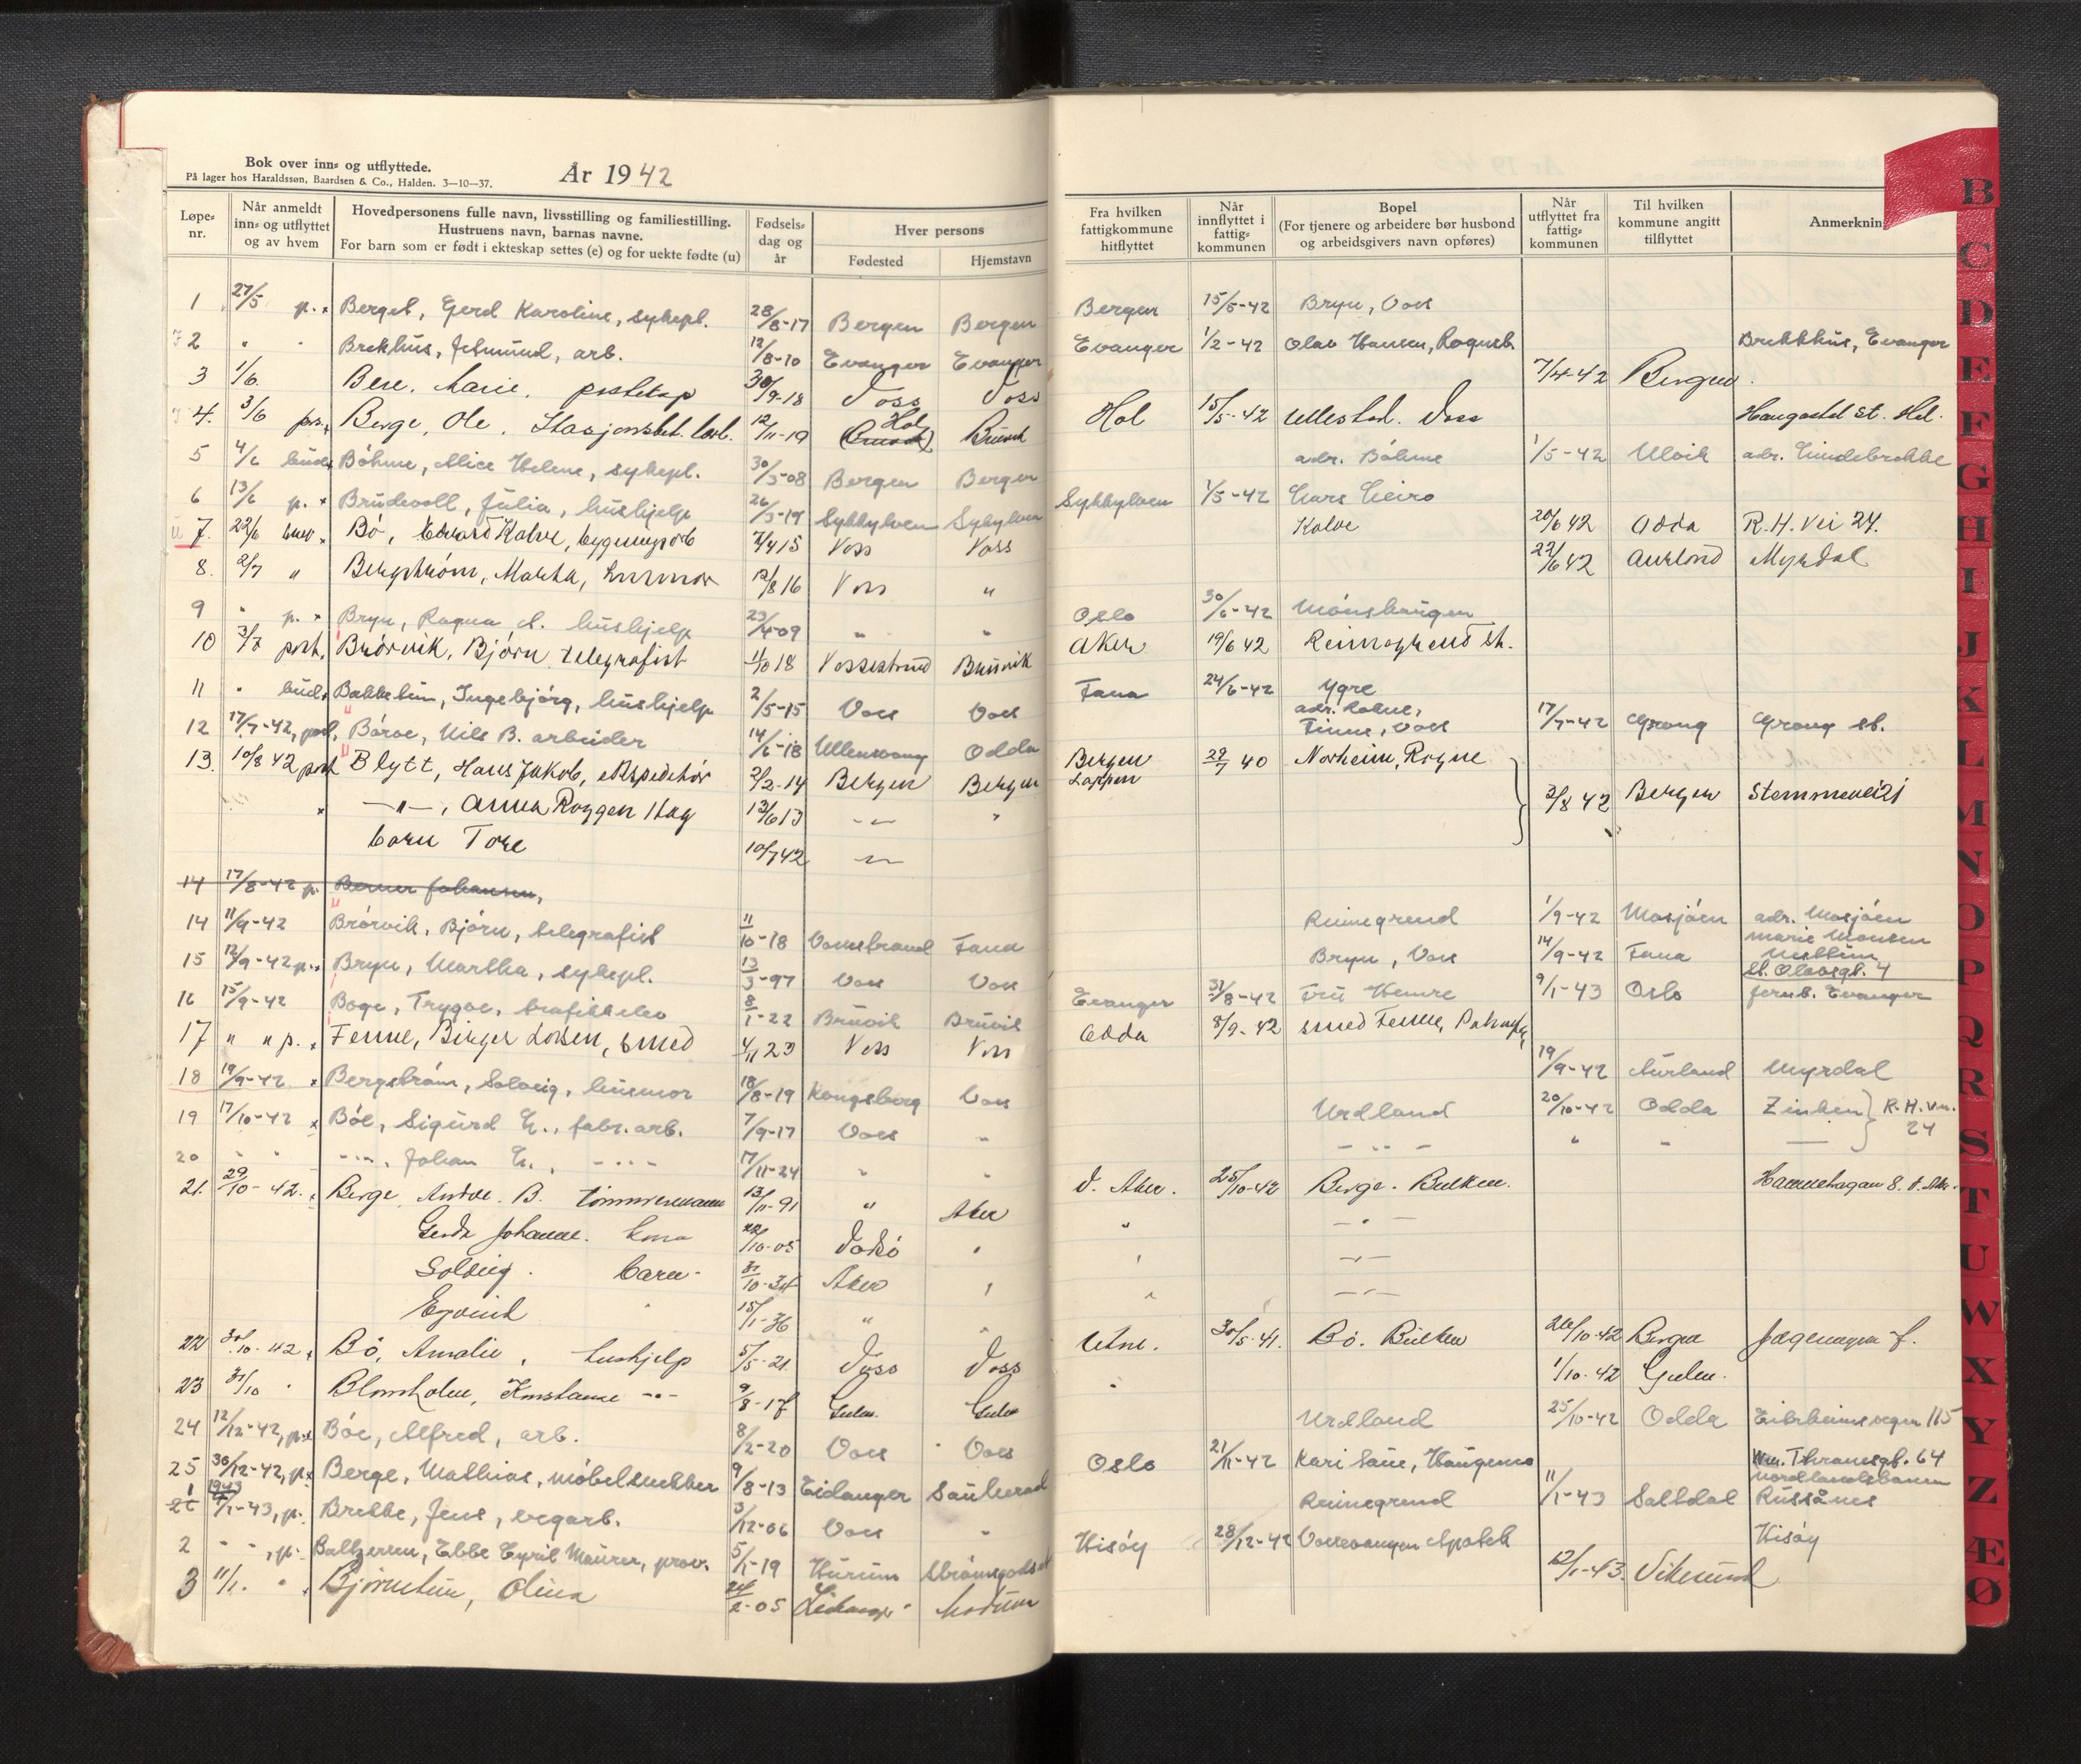 Bok over inn- og utflyttede.
På lager hos Haraldssøn, Baardsen & Co., Halden. 3—10—37.
År 1942
Løpe-nr.
Når anmeldt inn- og utflyttet og av hvem
Hovedpersonens fulle navn, livsstilling og familiestilling.
Hustruens navn, barnas navne.
For barn som er født i ekteskap settes (e) og for uekte fødte (u)
Fødsels-dag og år
Hver persons
Fødested
Hjemstavn
Fra hvilken fattigkommune hitflyttet
Når innflyttet i fattig-kommunen
Bopel
(For tjenere og arbeidere bør husbond og arbeidsgivers navn opføres)
Når utflyttet fra fattig-kommunen
Til hvilken kommune angitt tilflyttet
Anmerknin
1 27/5 p. Berget, Gerd Karoline, sykepl. 28/8-17 Bergen Bergen Bergen 15/5-42 Bryn, Voss
2 " " Brekhus, arb. 12/8-10 Evanger Evanger Evanger 1/2-42 Olav Hansen, Rognsb. Brekkhus, Evanger
3 1/6. Marie. 30/9-18 Voss Voss 7/4-42 Bergen.
4. 3/6 Berge, Ole. 12/11-19 Hol Hol 15/5-42 Ullestad. Voss Haugastøl st. Hol.
5 4/6 bud Böhme, Alice Helene, sykepl. 30/3-08 Bergen Bergen adr. Böhme 1/5-42 Ulvik adr. Lindebrekke
6 13/6 p. Brudevoll, Julia, hushjelp 26/3-19 Sykkylven Sykylven Sykkylven 1/5-42 Lars Leiro
7. 22/6 Bö, Edvard Kalve, 7/4 15 Voss Voss Kalve 20/6 42 Odda R.H. Vei 24.
8. 2/7 " Bergström, Martha, husmor 12/8 16 Voss " 22/6 42 Aurland Myrdal
9 " p. Bryn, Ragna hushjelp 23/4-09 " " Oslo 30/6-42 Mónshaugen
10 3/7 post. Brórvik, Bjórn telegrafist 11/10 18 Vossestrand Bruvik Aker 19/6 42 Reimegrend st.
11 " bud. Bakketun, Ingebjórg, hushjelp 2/5-15 Voss Voss Fana 24/6-42 Ygre
12 17/7-42, post, Börve, Nils B. arbeider 14/6-18 Ullensvang Odda Finne, Voss 17/7-42 Grong Grong st.
13. 10/8 42 post Blytt, Hans Jakob, ekspeditör 2/2-14 Bergen Bergen Bergen 29/7 40 Norheim, Rogne
—"—, Anna Roggen 13/6 13 —"— " 3/8 42 Bergen Stemmevei 21
barn Tore 10/7 42 —"—
14 17/8-42 p. Berner Johansen,
14 11/9-42 Brórvik, Bjórn, telegrafist 11/10-18 Vossestrand Fana Reimegrend 1/9-42 Mosjóen adr. Mosjóen
15 12/9-42 p. Bryn, Martha, sykepl. 13/3-97 Voss Voss Bryn, Voss 14/9-42 Fana Marie Monsen
16 15/9-42 Boge, Trygve, trafikkelev 8/1-22 Bruvik Bruvik Evanger 31/8-42 Fru Hemre 9/1-43 Oslo St. Olavsgt. 4
jernb. Evanger
17 " " p. Fenne, Birger smed 4/11 23 Voss Voss Odda 8/9-42 smed Fenne,
18 19/9-42 Bergström, Solveig, husmor 18/8-19 Kongsberg Voss 19/9-42 Aurland Myrdal
19 17/10-42 Böe, Sigurd E., fabr. arb. 7/9-17 Voss " Urdland 20/10-42 Odda Zinken R.H. vn. 24
20 " " —"—, Johan E., —"— 17/11-24 " " —"— " "
21. 29/10-42. Berge, B. tömmermann 13/11-91 " Aker V. Aker. 25/10-42 Berge. Bulken. 8. V. Aker.
Gerda Johanne. kona 22/10-05 " " —"—
Solveig. barn 31/10-34 Aker " " —"—
Eyvind " 15/1-36 " " " —"—
22 30/10-42. Bö, Amalie, hushjelp 5/5-21 Voss Voss 30/5-41. Bö. Bulken 26/10-42 Bergen
23 31/10 " Blomholm, Konstanse —"— 9/8-17 Gulen Gulen 1/10-42 Gulen.
24 12/12-42, p. Böe, Alfred, arb. 8/2-20 Voss Voss Urdland 25/10-42 Odda Eitrheimsvegen 115
25 30/12-42, p. Berge, Mathias, möbelsnekker 9/8-13 Eidanger Sauherad Oslo 21/11-42 Kari Saue, Haugamo Thranesgt. 64
1943
1 26 4/1-43, p. Brekke, Jens, vegarb. 3/12-06 Voss " Reimegrend 11/1-43 Saltdal Nordlandsbanen Russånes
2 " ", p. Baltzersen, Ebbe Cyril Maurer, prov. 5/1-19 Hurum Strömsgodset Hisóy 28/12-42 Vossevangen Apotek Hisóy
3 11/1. " Björnstun, Olina 24/2-05 Modum 12/1-43. Vikesund
B
C
D
E
F
G
H
I
J
K
L
M
N
O
P
Q
R
S
T
U
W
X
Y
Z
Æ
Ø